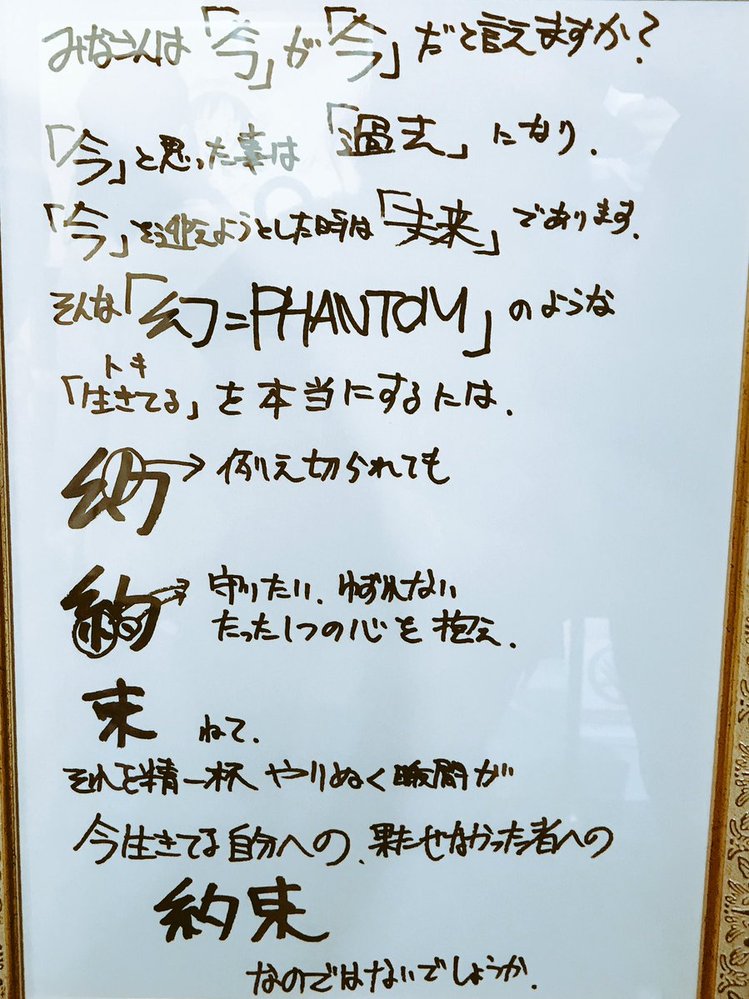 みなさんは「今」が「今」だと言えますか?
「今」と思った事は「過去」になり、
「今」を迎えようとした時は「未来」であります。
そんな「幻=PHANTOM」のような
トキ
「生きてる」を本当にするには、
幻→例え切られても
約→守りたい、ゆずれない
たった1つの心を抱え、
束ねて、
それを精一杯やりぬく瞬間が
今生きてる自分への、果たせなかった者への
約束
なのではないでしょうか。